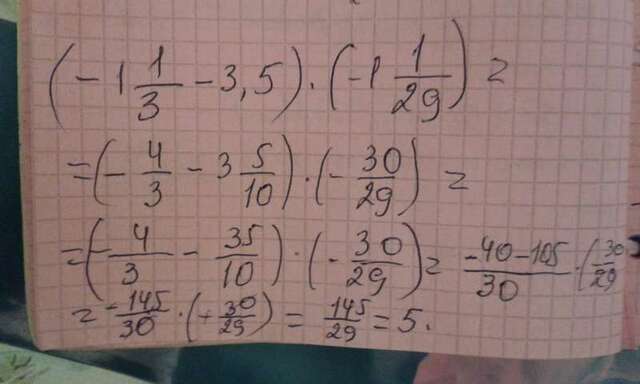 (-1 1/3 - 3,5) · (-1 1/29) =
= (-4/3 - 3 5/10) · (-30/29) =
= (-4/3 - 35/10) · (-30/29) = -40-105/30 · (30/29
= -145/30 · (-30/29) = 145/29 = 5.